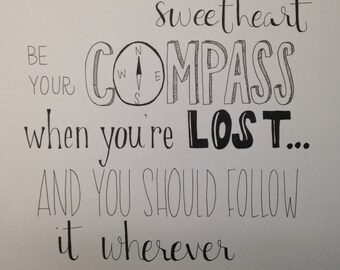 sweetheart
BE YOUR COMPASS
when you're LOST...
AND YOU SHOULD FOLLOW
it wherever